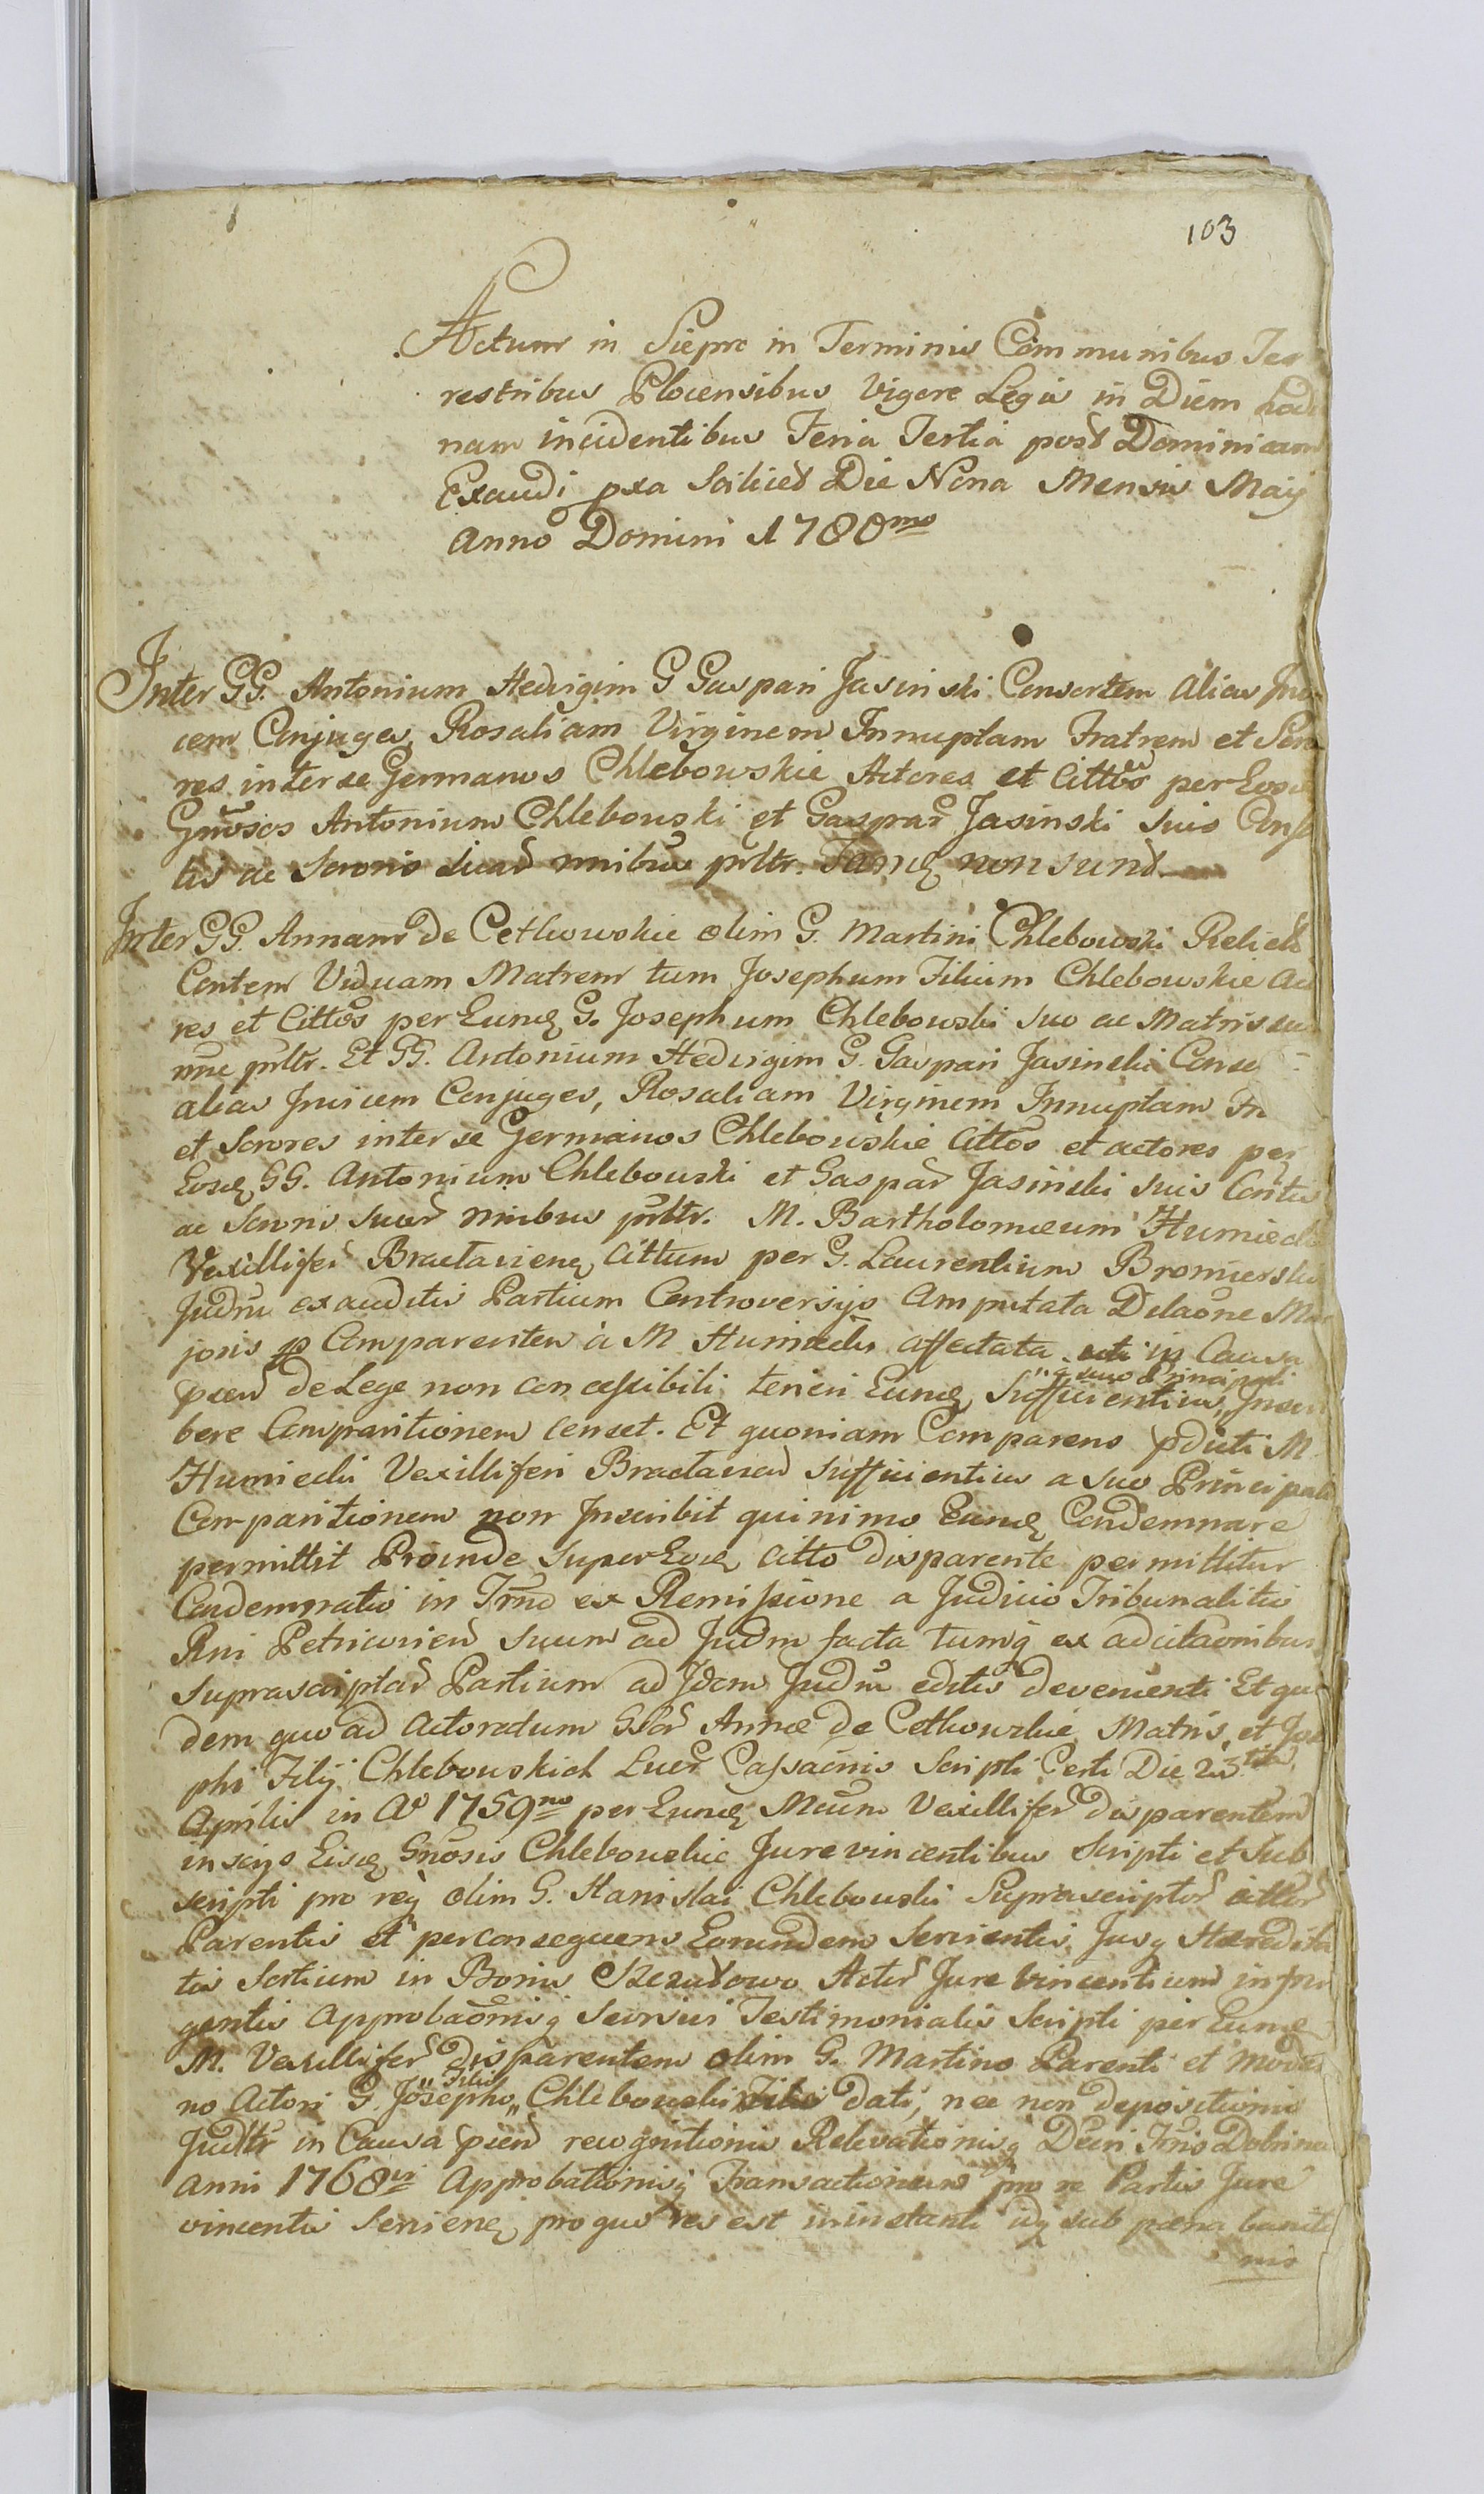 103
Actum in Sieprc in Terminis Communibus Ter
restribus Plocensibus Vigore Legis in Diem hodi
nam incidentibus Feria Tertia post Dominicam
Exaudi pxa Scilicet Die Nona Mensis Maij
Anno Domini 1780mo
Inter GG. Antonium Hedvigim G Gaspari Jasinski Consortem alias Inv
cem Conjuges, Rosaliam Virginem Innuptam Fratrem et Soro
res inter se Germanos Chlebowskie Actores et Cittos per Eosd
Gnosos Antonium Chlebowski et Gaspar Jasinski Suis Cons
tis ac Sororis Suar nnibus prltr. Jasnq non sunt.
Inter GG. Annam de Cetkowskie olim G. Martini Chlebowski Relict
Contem Viduam Matrem tum Josephum Filium Chlebowskie Acto
res et Cittos per Eundq G. Josephum Chlebowski suo ac Matris su
nne prltr. Et GG. Antonium Hedvigim G. Gaspari Jasinski Conso
alias Invicem Conjuges, Rosaliam Virginem Innuptam Fr
et Sorores inter se Germanos Chlebowskie Cittos et actores per
Eosdq GG. Antonium Chlebowski et Gaspar Jasinski suis Contis
ac Sororis Suar nnibus prltr. M. Bartholomæum Humiecki
Vexillifer Braclavienq Cittum per G. Laurentium Bromierski
Judm exauditis Partium Controversijs Amputata Dilaone Ma
joris p Comparentem à M Humiecki affectata uti in Causa
præd de Lege non concessibili teneri Eundq Sufficientius, Inscri
"a suo Principali
bere Comparitionem censet. Et quoniam Comparens pdicti M
Humiecki Vexilliferi Braclavien Sufficientius a suo Principali
Comparitionem non Inscribit quinimo Eundq Condemnare
permittit Proinde super Eodq Citto disparente permittitur
Condemnatio in Trno ex Remissione a Judicio Tribunalitio
Rni Petricovien Suum ad Judm facta tumq ex adcitaonibus
suprascriptar Partium ad Idem Judm editis devenienti Et qui
dem quo ad Actoratum GGr Annæ de Cetkowskie Matris, et Jose
phi Filij Chlebowskich Luer Cassaonis Scripti Certi Die 23tia
Aprilis in Ao 1759no per Eundq Mcum Vexillifer disparentem
inscijs Eisdq Gnosis Chlebowskie Jure vincentibus Scripti et Sub
scripti pro req olim G. Stanislai Chlebowski Suprascriptor cittor
Parentis et per consequens Eorundem Servientis, Jusq Hæredita
tis Sortium in Bonis Skezutowo Actor Jure Vincentium infrin
gentis Approbaonisq Seorsivi Testimonialis Scripti per Eundq
M. Vexillifer disparentem olim G. Martino Parenti et moder
no Actori G. Josepho "Filio" Chlebowski dati, nec non depositionis
Judltr in Causa præd recognitionis Relevationisq Dcvi Trnis Dobrinen
anni 1768vi Approbationisq Transactionum pro re Partis Jure
vincentis Servienq pro quo res est in instanti idq sub pæna baniti
nis